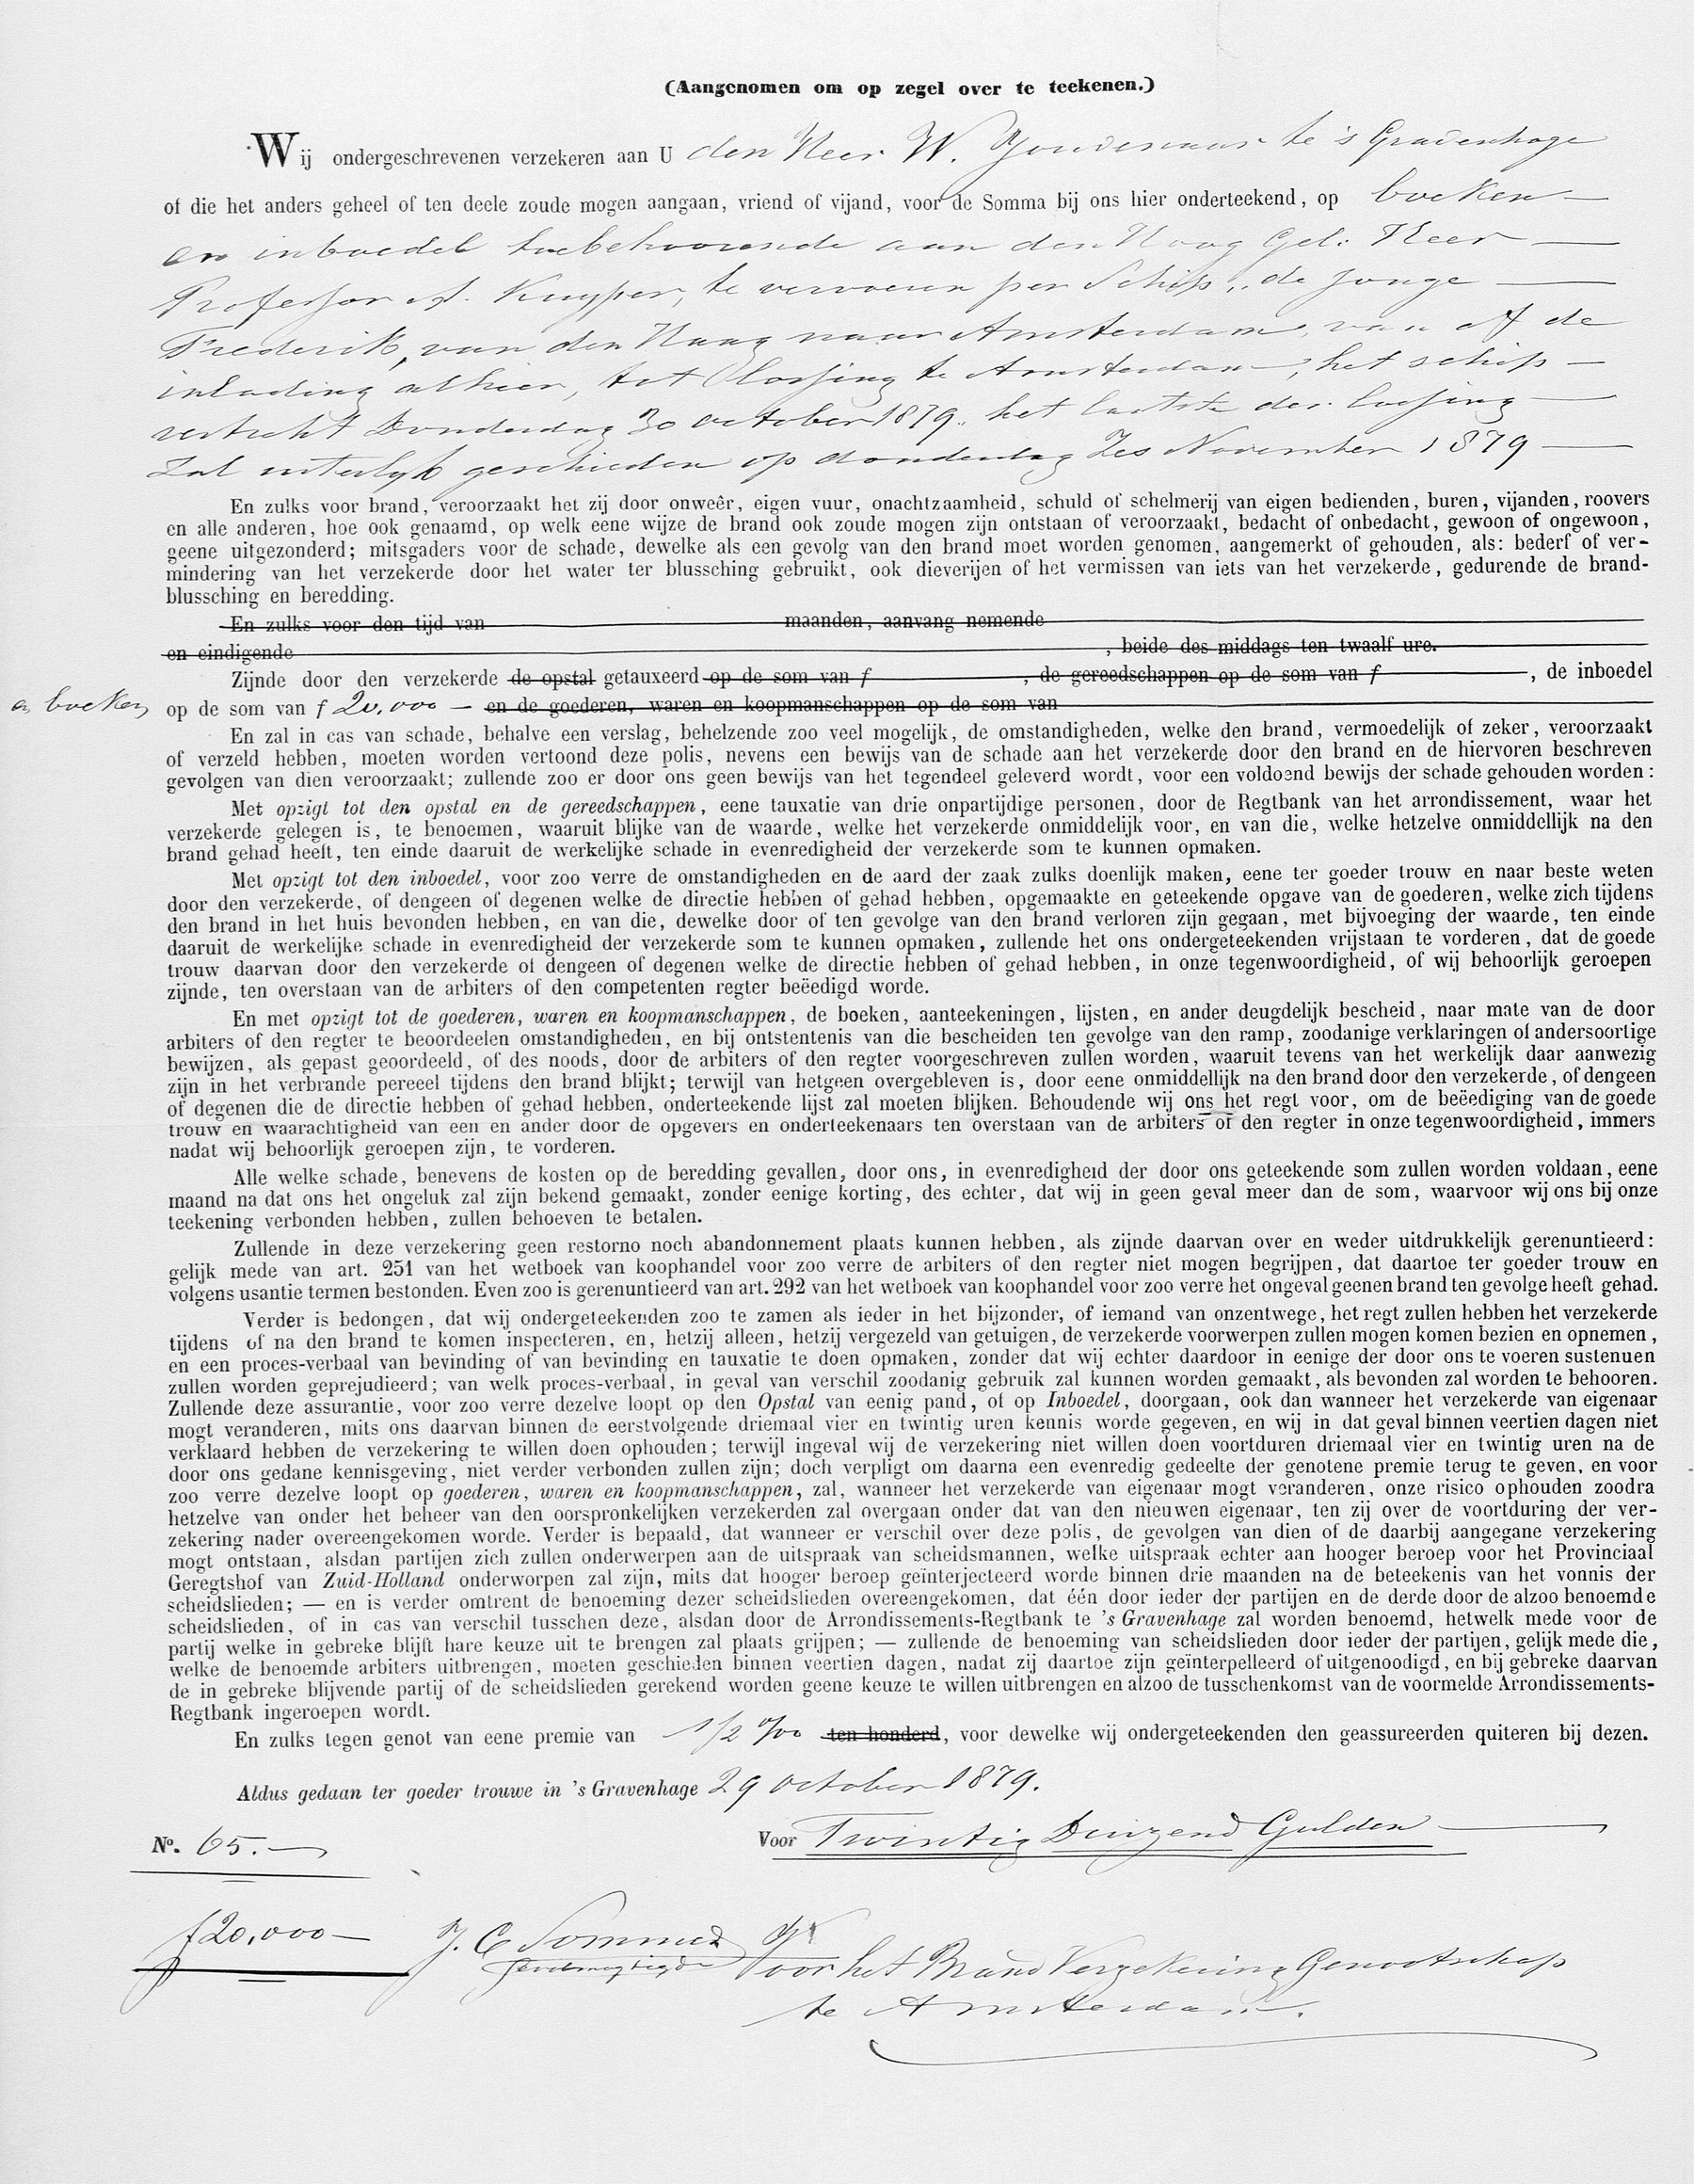 (Aangenomen om op zegel over te teekenen.)
Wij ondergeschrevenen verzekeren aan U den Heer W. te 's Gravenhage
of die het anders geheel of ten deele zoude mogen aangaan, vriend of vijand, voor de Somma bij ons hier onderteekend, op boeken
en inboedel toebehoorende aan den Hoog Gel: Heer
Professor A. Kuyper, te vervoeren per Schip „de jonge
Frederik, van den Haag naar Amsterdam, van af de
inlading alhier, tot lossing te Amsterdam, het schip
vertrekt Donderdag 30 october 1879. het laatste der lossing
zal uiterlyk geschieden op donderdag Zes November 1879
En zulks voor brand, veroorzaakt het zij door onweêr, eigen vuur, onachtzaamheid, schuld of schelmerij van eigen bedienden, buren, vijanden, roovers
en alle anderen, hoe ook genaamd, op welk eene wijze de brand ook zoude mogen zijn ontstaan of veroorzaakt, bedacht of onbedacht, gewoon of ongewoon,
geene uitgezonderd; mitsgaders voor de schade, dewelke als een gevolg van den brand moet worden genomen, aangemerkt of gehouden, als: bederf of ver-
mindering van het verzekerde door het water ter blussching gebruikt, ook dieverijen of het vermissen van iets van het verzekerde, gedurende de brand-
blussching en beredding.
En zulks voor den tijd van maanden, aanvang nemende
en eindigende , beide des middags ten twaalf ure.
Zijnde door den verzekerde de opstal getauxeerd op de som van f , de gereedschappen op de som van f , de inboedel
en boeken op de som van f 20,000 — en de goederen, waren en koopmanschappen op de som van
En zal in cas van schade, behalve een verslag, behelzende zoo veel mogelijk, de omstandigheden, welke den brand, vermoedelijk of zeker, veroorzaakt
of verzeld hebben, moeten worden vertoond deze polis, nevens een bewijs van de schade aan het verzekerde door den brand en de hiervoren beschreven
gevolgen van dien veroorzaakt; zullende zoo er door ons geen bewijs van het tegendeel geleverd wordt, voor een voldoend bewijs der schade gehouden worden:
Met opzigt tot den opstal en de gereedschappen, eene tauxatie van drie onpartijdige personen, door de Regtbank van het arrondissement, waar het
verzekerde gelegen is, te benoemen, waaruit blijke van de waarde, welke het verzekerde onmiddelijk voor, en van die, welke hetzelve onmiddellijk na den
brand gehad heeft, ten einde daaruit de werkelijke schade in evenredigheid der verzekerde som te kunnen opmaken.
Met opzigt tot den inboedel, voor zoo verre de omstandigheden en de aard der zaak zulks doenlijk maken, eene ter goeder trouw en naar beste weten
door den verzekerde, of dengeen of degenen welke de directie hebben of gehad hebben, opgemaakte en geteekende opgave van de goederen, welke zich tijdens
den brand in het huis bevonden hebben, en van die, dewelke door of ten gevolge van den brand verloren zijn gegaan, met bijvoeging der waarde, ten einde
daaruit de werkelijke schade in evenredigheid der verzekerde som te kunnen opmaken, zullende het ons ondergeteekenden vrijstaan te vorderen, dat de goede
trouw daarvan door den verzekerde of dengeen of degenen welke de directie hebben of gehad hebben, in onze tegenwoordigheid, of wij behoorlijk geroepen
zijnde, ten overstaan van de arbiters of den competenten regter beëedigd worde.
En met opzigt tot de goederen, waren en koopmanschappen, de boeken, aanteekeningen, lijsten, en ander deugdelijk bescheid, naar mate van de door
arbiters of den regter te beoordeelen omstandigheden, en bij ontstentenis van die bescheiden ten gevolge van den ramp, zoodanige verklaringen of andersoortige
bewijzen, als gepast geoordeeld, of des noods, door de arbiters of den regter voorgeschreven zullen worden, waaruit tevens van het werkelijk daar aanwezig
zijn in het verbrande perceel tijdens den brand blijkt; terwijl van hetgeen overgebleven is, door eene onmiddellijk na den brand door den verzekerde, of dengeen
of degenen die de directie hebben of gehad hebben, onderteekende lijst zal moeten blijken. Behoudende wij ons het regt voor, om de beëediging van de goede
trouw en waarachtigheid van een en ander door de opgevers en onderteekenaars ten overstaan van de arbiters of den regter in onze tegenwoordigheid, immers
nadat wij behoorlijk geroepen zijn, te vorderen.
Alle welke schade, benevens de kosten op de beredding gevallen, door ons, in evenredigheid der door ons geteekende som zullen worden voldaan, eene
maand na dat ons het ongeluk zal zijn bekend gemaakt, zonder eenige korting, des echter, dat wij in geen geval meer dan de som, waarvoor wij ons bij onze
teekening verbonden hebben, zullen behoeven te betalen.
Zullende in deze verzekering geen restorno noch abandonnement plaats kunnen hebben, als zijnde daarvan over en weder uitdrukkelijk gerenuntieerd:
gelijk mede van art. 251 van het wetboek van koophandel voor zoo verre de arbiters of den regter niet mogen begrijpen, dat daartoe ter goeder trouw en
volgens usantie termen bestonden. Even zoo is gerenuntieerd van art. 292 van het wetboek van koophandel voor zoo verre het ongeval geenen brand ten gevolge heeft gehad.
Verder is bedongen, dat wij ondergeteekenden zoo te zamen als ieder in het bijzonder, of iemand van onzentwege, het regt zullen hebben het verzekerde
tijdens of na den brand te komen inspecteren, en, hetzij alleen, hetzij vergezeld van getuigen, de verzekerde voorwerpen zullen mogen komen bezien en opnemen,
en een proces-verbaal van bevinding of van bevinding en tauxatie te doen opmaken, zonder dat wij echter daardoor in eenige der door ons te voeren sustenuen
zullen worden geprejudieerd; van welk proces-verbaal, in geval van verschil zoodanig gebruik zal kunnen worden gemaakt, als bevonden zal worden te behooren.
Zullende deze assurantie, voor zoo verre dezelve loopt op den Opstal van eenig pand, of op Inboedel, doorgaan, ook dan wanneer het verzekerde van eigenaar
mogt veranderen, mits ons daarvan binnen de eerstvolgende driemaal vier en twintig uren kennis worde gegeven, en wij in dat geval binnen veertien dagen niet
verklaard hebben de verzekering te willen doen ophouden; terwijl ingeval wij de verzekering niet willen doen voortduren driemaal vier en twintig uren na de
door ons gedane kennisgeving, niet verder verbonden zullen zijn; doch verpligt om daarna een evenredig gedeelte der genotene premie terug te geven, en voor
zoo verre dezelve loopt op goederen, waren en koopmanschappen, zal, wanneer het verzekerde van eigenaar mogt veranderen, onze risico ophouden zoodra
hetzelve van onder het beheer van den oorspronkelijken verzekerden zal overgaan onder dat van den nieuwen eigenaar, ten zij over de voortduring der ver-
zekering nader overeengekomen worde. Verder is bepaald, dat wanneer er verschil over deze polis, de gevolgen van dien of de daarbij aangegane verzekering
mogt ontstaan, alsdan partijen zich zullen onderwerpen aan de uitspraak van scheidsmannen, welke uitspraak echter aan hooger beroep voor het Provinciaal
Geregtshof van Zuid-Holland onderworpen zal zijn, mits dat hooger beroep geïnterjecteerd worde binnen drie maanden na de beteekenis van het vonnis der
scheidslieden; — en is verder omtrent de benoeming dezer scheidslieden overeengekomen, dat één door ieder der partijen en de derde door de alzoo benoemde
scheidslieden, of in cas van verschil tusschen deze, alsdan door de Arrondissements-Regtbank te 's Gravenhage zal worden benoemd, hetwelk mede voor de
partij welke in gebreke blijft hare keuze uit te brengen zal plaats grijpen; — zullende de benoeming van scheidslieden door ieder der partijen, gelijk mede die,
welke de benoemde arbiters uitbrengen, moeten geschieden binnen veertien dagen, nadat zij daartoe zijn geïnterpelleerd of uitgenoodigd, en bij gebreke daarvan
de in gebreke blijvende partij of de scheidslieden gerekend worden geene keuze te willen uitbrengen en alzoo de tusschenkomst van de voormelde Arrondissements-
Regtbank ingeroepen wordt.
En zulks tegen genot van eene premie van 1/2 ‰ ten honderd, voor dewelke wij ondergeteekenden den geassureerden quiteren bij dezen.
Aldus gedaan ter goeder trouwe in 's Gravenhage 29 october 1879.
No. 65.— Voor Twintig Duizend Gulden
f 20,000— Voor het Brand Verzekering Genootschap
J. C. Sommer
gevolmagtigde
te Amsterdam.